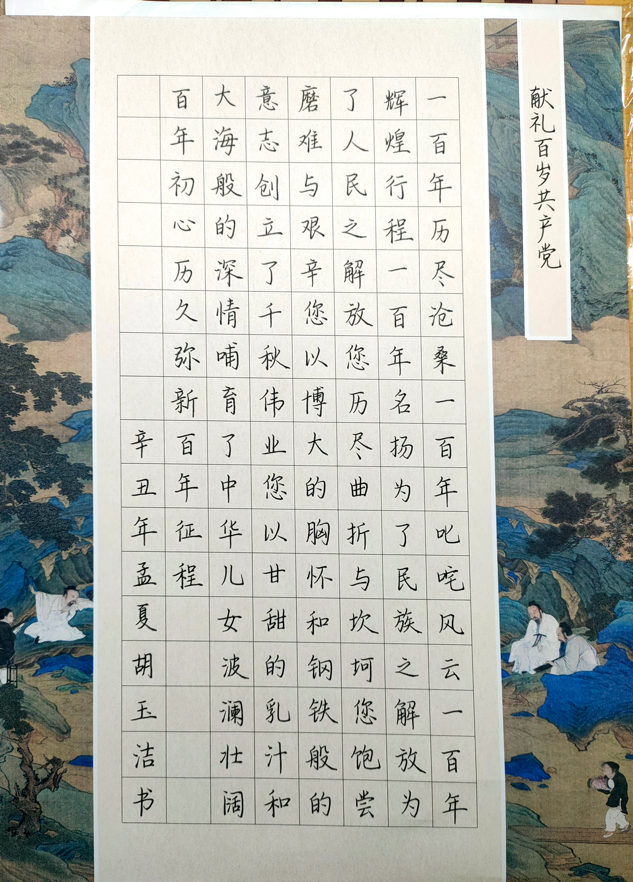 献礼百岁共产党
一百年历尽沧桑一百年叱咤风云一百年
辉煌行程一百年名扬为了民族之解放为
了人民之解放您历尽曲折与坎坷您饱尝
磨难与艰辛您以博大的胸怀和钢铁般的
意志创立了千秋伟业您以甘甜的乳汁和
大海般的深情哺育了中华儿女波澜壮阔
百年初心历久弥新百年征程
辛丑年孟夏胡玉洁书